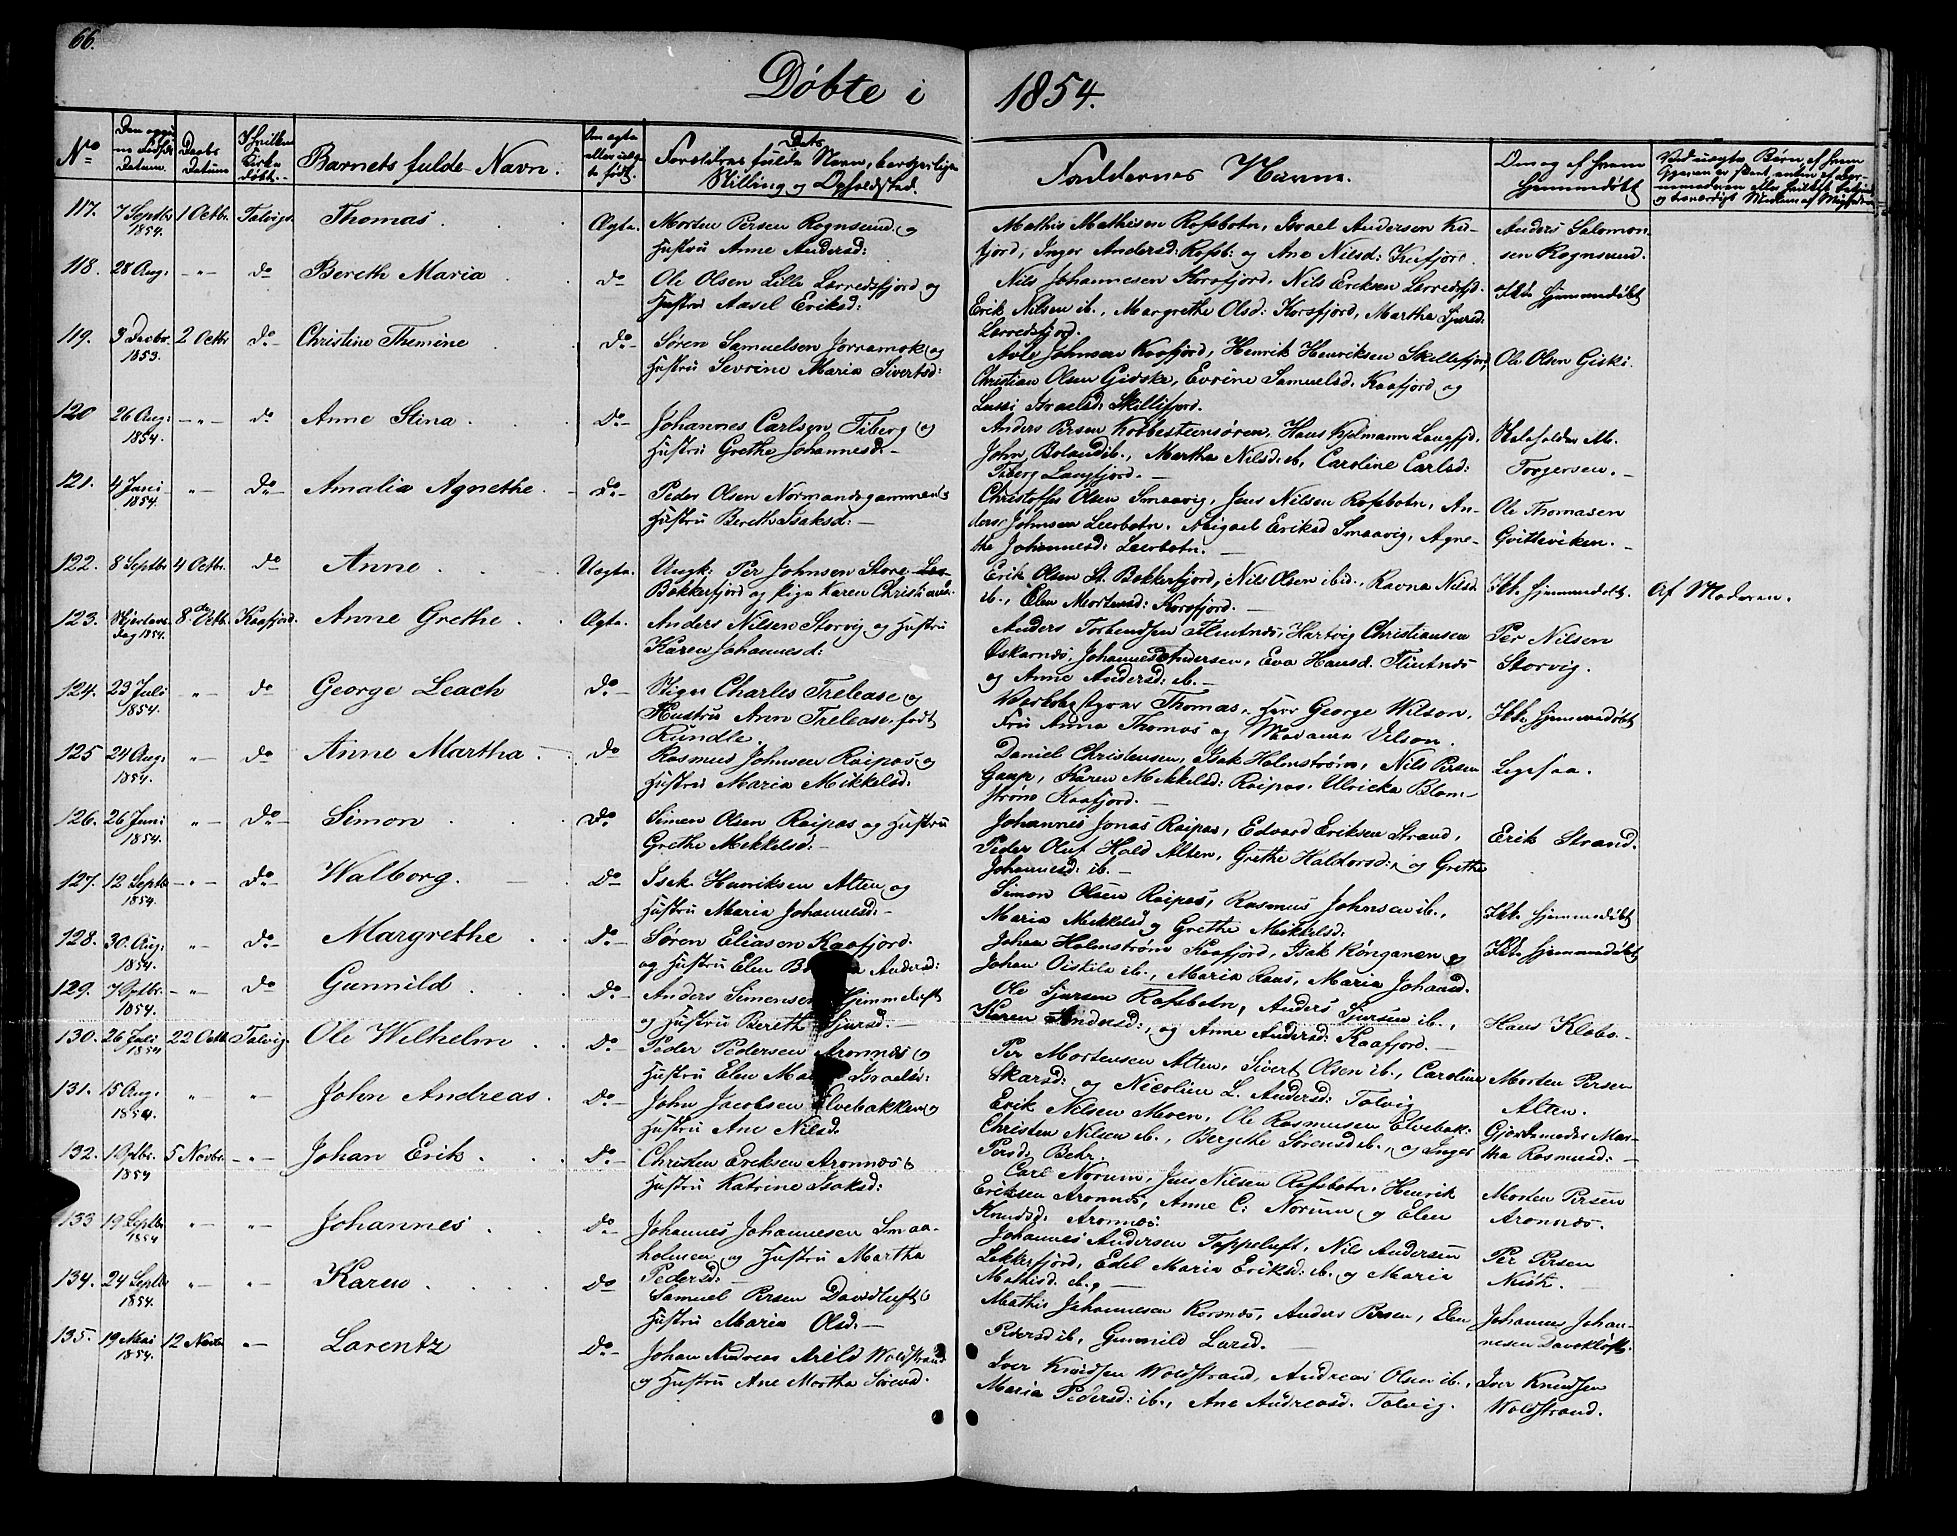 66.
Døbte i 1854.
No
Datum.
Daabs Datum
Barnets fulde Navn.
Faddernes Navne.
117. 7 Septbr 1854. 1 Octbr. Talvigs Thomas. Ægte. Morten Persen Rognsund og
Hustru Anne Andersd:
Mathis Mathisen Rafsbotn, Israel Andersen
fjord, Inger Andersd: Rafsb: og Ane Nilsd:
Anders Salomon-
sen Rognsund.
118. 28 Aug: -"- do Bereth Maria do Ole Olsen Lille Lerredsfjord og
Hustru Aasel Eriksd:
Nils Johannesen Korsfjord, Nils Eriksen Lerredsfjd.
Erik Nilsen ib., Margrethe Olsd: Korsfjord, Martha Sjursd:
Lerredsfjord.
Ikke hjemmedøbt
119. 3 Decbr. 1853. 2 Octbr do- Christine Themine do- Søren Samuelsen Jorramok og
Hustru Sevrine Maria Sivertsd:
Johnsen Kaafjord, Henrik Henriksen Skillefjord,
Christian Olsen Gidske, Evrine Samuelsd. Kaafjord og
Lussi Israelsd: Skillifjord.
Ole Olsen Giski.
120 26 Aug: 1854. -"- do Anne Stina. do- Johannes Carlsen Tiberg og
Hustru Grethe Johannesd:-
Anders Persen Kobbesteensøren, Hans Kjelmann Langfjd.
John Boland ib., Martha Nilsd: ib, Caroline Carlsd:
Tiberg Langfjord. -
M.
Torgersen. -
121. 4 Juni 1854. -"- do- Amalia Agnethe. do- Peder Olsen Normandsgammen og
Hustru Bereth Isaksd: -
Christoffer Olsen Smaavig, Jens Nilsen Rafsbotn, An-
ders Johnsen Leerbotn, Abigael Eriksd Smaavig, Agne-
the Johannesd: Leerbotn. -
Ole Thomasen
Qvitteviken. -
122. 8 Septbr 4 Octbr. do Anne. Uægte. Ungk: Per Johnsen Store-
Bekkerfjord og Pige Karen Christiansd.
Erik Olsen St. Bekkerfjord, Nils Olsen ibid., Ravna Nilsd:
ib., Elen Mortensd: Korsfjord. -
Ikke hjemmedøbt. Af Moderen.
123. 1854. 8de Octbr. Kaafjord. Anne Grethe. Ægte. Anders Nilsen Storvig og Hustru
Karen Johannesd:
Anders Torbendsen Flintnes, Hartvig Christiansen
Oskarnes, Johannes Andersen, Eva Hansd. Flintnes
og Anne Andersd: ib. -
Per Nilsen
Storvig.
124. 23 Juli 1854. -"- do George Leach do- Stiger Charles Trelease og
Hustru Ann Trelease, født
Rundle.
Thomas, Herr George Wilson,
Fru Anna Thomas og Madame Velson.
Ikke hjemmedøbt
125 24 Aug: 1854. -"- do Anne Martha. do Rasmus Johnsen Raipas og
Hustru Maria Mikkelsd:
Daniel Christensen, Isak Holmstrøm, Nils Persen
Gaup, Karen Mikkelsd: Raipas, Ulricka Blom-
strøm Kaafjord. -
Ligesaa.
126. 26 Juni 1854. -"- do- Simon. do Simen Olsen Raipas og Hustru
Grethe Mikkelsd: -
Johannes Jonas Raipas, Edvard Eriksen Strand,
Peder Oluf Hald Alten, Grethe Haldorsd:, og Grethe
Johannesd: ib. -
Erik Strand.
127. 12 Septbr 1854. -"- do- Walborg. do Isak Henriksen Alten og
Hustru Maria Johannesd: -
Simon Olsen Raipas, Rasmus Johnsen ib.,
Maria Mikkelsd og Grethe Mikkelsd:
Ikke hjemmedøbt
128. 30 Aug: 1854. -"- do- Margrethe. do- Søren Eliasen Kaafjord.
og Hustru Elen Andersd:
Johan Holmstrøm Kaafjord, Isak Kønganen og
Johan Oiskila ib., Maria Raas, Maria Johansd.
Ikke hjemmedøbt
129. 7 Octbr. 1854. -"- do Gunnild. do- Anders Simensen Himmeluft
og Hustru Bereth Sjursd: -
Ole Sjursen Rafsbotn, Anders Sjursen ib.,
Karen Andersd:, og Anne Andersd: Kaafjord. -
Hans Klebo. -
130. 26 Juli 1854 22 Octb. Talvig. Ole Wilhelm. do- Peder Pedersen Aronnes og
Hustru Elen Israelsd:
Per Mortensen Alten, Sivert Olsen ib., Caroline
Skarsd: og Nicoline L. Andersd: Talvig
Morten Persen
Alten.
131. 15 Aug: 1854. " -"- John Andreas. do- John Jacobsen Elvebakken og
Hustru Ane Nilsd.
Erik Nilsen Moen, Ole Rasmusen Elvebak:
Christen Nilsen ib., Bergethe Sørensd ib., og Inger
Persd: Behr.
Gjordemoder Mar-
tha Rasmusd: -
132. 1 Octbr. 1854 5 Novbr. -"- Johan Erik. do- Christen Eriksen Aronnes og
Hustru Katrine Isaksd:
Carl Norum, Jens Nilsen Rafsbotn, Henrik
Eriksen Aronnes, Anne C: Norum og Elen
Knudsd: Aronnes.
Morten Persen
Aronnes.
133 19 Septbr 1854 -"- -"- Johannes. do- Johannes Johannesen Smaa-
holmen, og Hustru Martha
Pedersd: -
Johannes Andersen Toppeluft, Nils Andersen
Lekkerfjord, Edel Maria Eriksd: ib. og Maria
Mathisd: ib. -
Per Persen
134. 24 Septbr 1854. -"- -"- Karen. do Samuel Persen Davidluft og
Hustru Maria Olsd: -
Mathis Johannesen Korsnes, Anders Persen, Elen
Pedersd ib., Gunnild Larsd. -
Johannes Johan-
nesen Davikluft.
135. 19 Mai 1854. 12 Novbr -"- Larentz do- Johan Andreas Arild Woldstrand
og Hustru Ane Martha Sørensd.
Iver Knudsen Woldstrand, Andreas Olsen ib.,
Maria Pedersd: ib., Ane Andreasd. Talvig.
Iver Knudsen
Woldstrand.